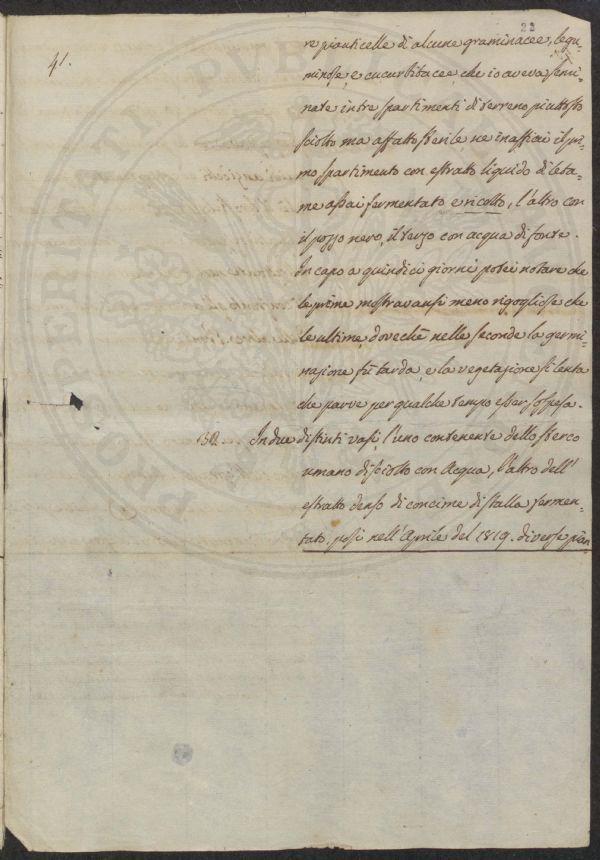 22
41.
re pianticelle di alcune graminacee, legu-
minose, e cucurbitacee, che io aveva semi-
nate in tre spartimenti di terreno piuttosto
sciolto ma affatto sterile ne inaffiai il pri-
mo spartimento con estratto liquido di leta-
me assai fermentato e ricolto, l'altro con
il pozzo nero, il terzo con acqua di fonte.
In capo a quindici giorni potei notare che
le prime mostravansi meno rigogliose che
le ultime, dovechè nelle seconde la germi-
nazione fù tarda, e la vegetazione sì lenta
che parve per qualche tempo esser sospesa.
158. In due distinti vasi, l'uno contenente dello sterco
umano disciolto con Acqua, l'altro dell'
estratto denso di concime di stalla fermen-
tato. posi nell'Aprile del 1819. diverse pian
PROSPERITATI PUBL